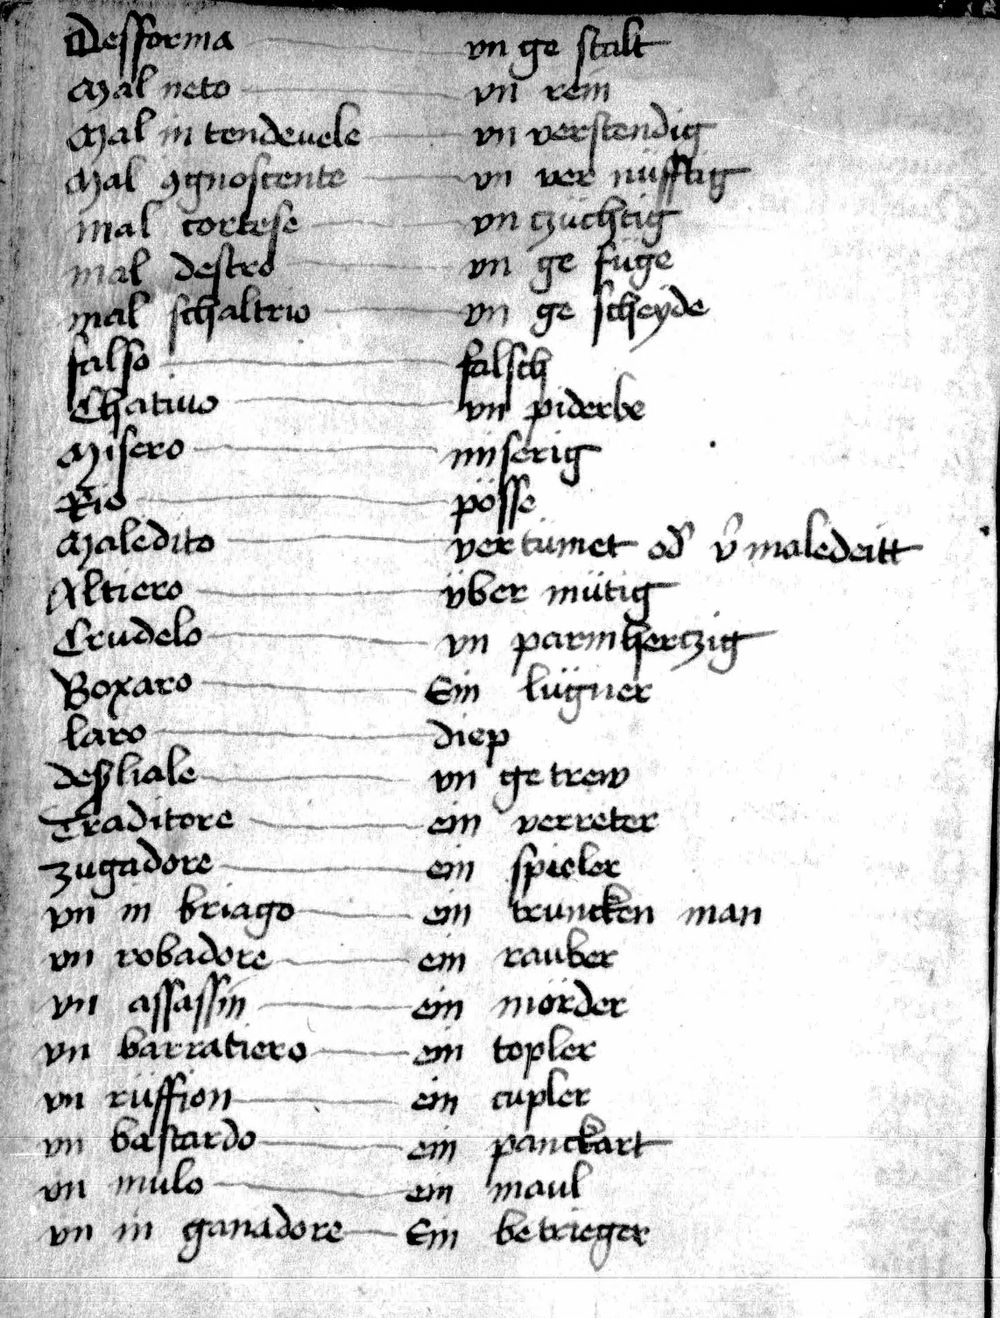 Desforma vn ge stalt
Mal neto vn rein
Mal in tendeuele vn verstendig
Mal ꝯgnoscente vn ver nüfftig
mal cortese vn czüchtig
mal destro vn ge füge
mal schaltrio vn ge scheyde
falso falsch
Chatiuo vn piderbe
Misero miserig
Rio pösse
Maledito vertümet od̛ v̛maledeitt
Altiero vber mütig
Crudelo vn parmhertzig
Boxaro Ein lügner
laro diep
desliale vn ge trew
Traditore ein verreter
zugadore ein spieler
vn in briago ein truncken man
vn robadore ein rauber
vn assassin ein mörder
vn barratiero ein topler
vn rüffion ein cupler
vn bastardo ein panckart
vn mulo ein maul
vn in ganadore Ein betrieger